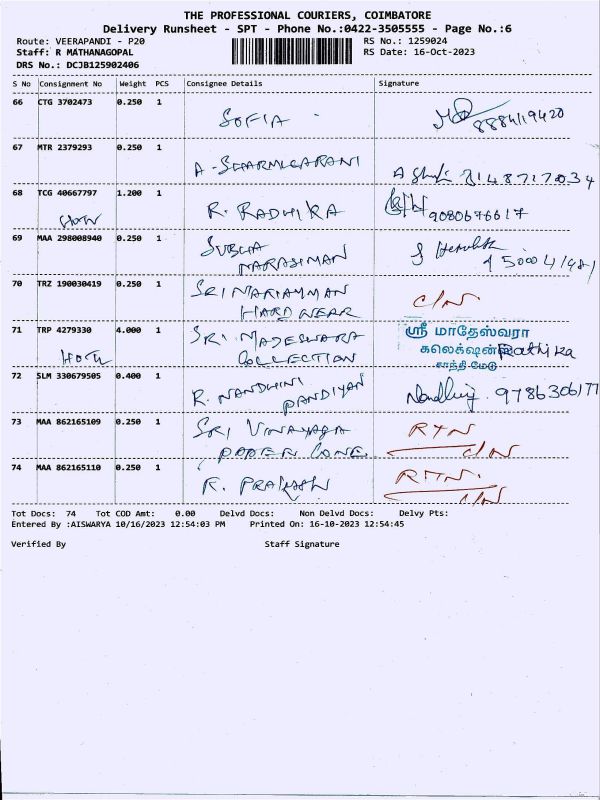 THE PROFESSIONAL COURIERS, COIMBATORE
Delivery Runsheet - SPT - Phone No.:0422-3505555 - Page No.:6
Route: VEERAPANDI - P20 RS No.: 1259024
Staff: R MATHANAGOPAL RS Date: 16-Oct-2023
DRS No.: DCJB125902406
S No Consignment No Weight PCS Consignee Details Signature
66 CTG 3702473 0.250 1 SOFIA 8884119420
67 MTR 2379293 0.250 1 A. SHARMILARANI 8148717034
68 TCG 40667797 1.200 1 R. RADHIKA 9080676617
69 MAA 298008940 0.250 1 SUBHA
NARASIMAN
70 TRZ 190030419 0.250 1 SRI MARIAMMAN C/N
HARDWEAR
71 TRP 4279330 4.000 1 SRI MADESWARA ஸ்ரீ மாதேஸ்வரா
COLLECTION கலெக்ஷன்
சாந்திமேடு
72 SLM 330679505 0.400 1 R. NANDHINI
PANDIYAN
73 MAA 862165109 0.250 1 SRI VINAYAGA RTN
PAPER CONE C/N
74 MAA 862165110 0.250 1 K. PRAKASH RTN.
C/N
Tot Docs: 74 Tot COD Amt: 0.00 Delvd Docs: Non Delvd Docs: Delvy Pts:
Entered By :AISWARYA 10/16/2023 12:54:03 PM Printed On: 16-10-2023 12:54:45
Verified By Staff Signature